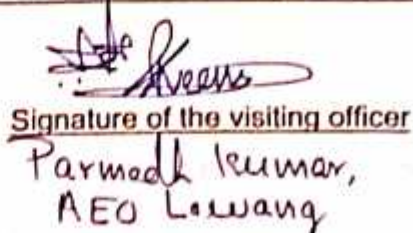 Signature of the visiting officer
Parmodh kumar,
AEO Lawang